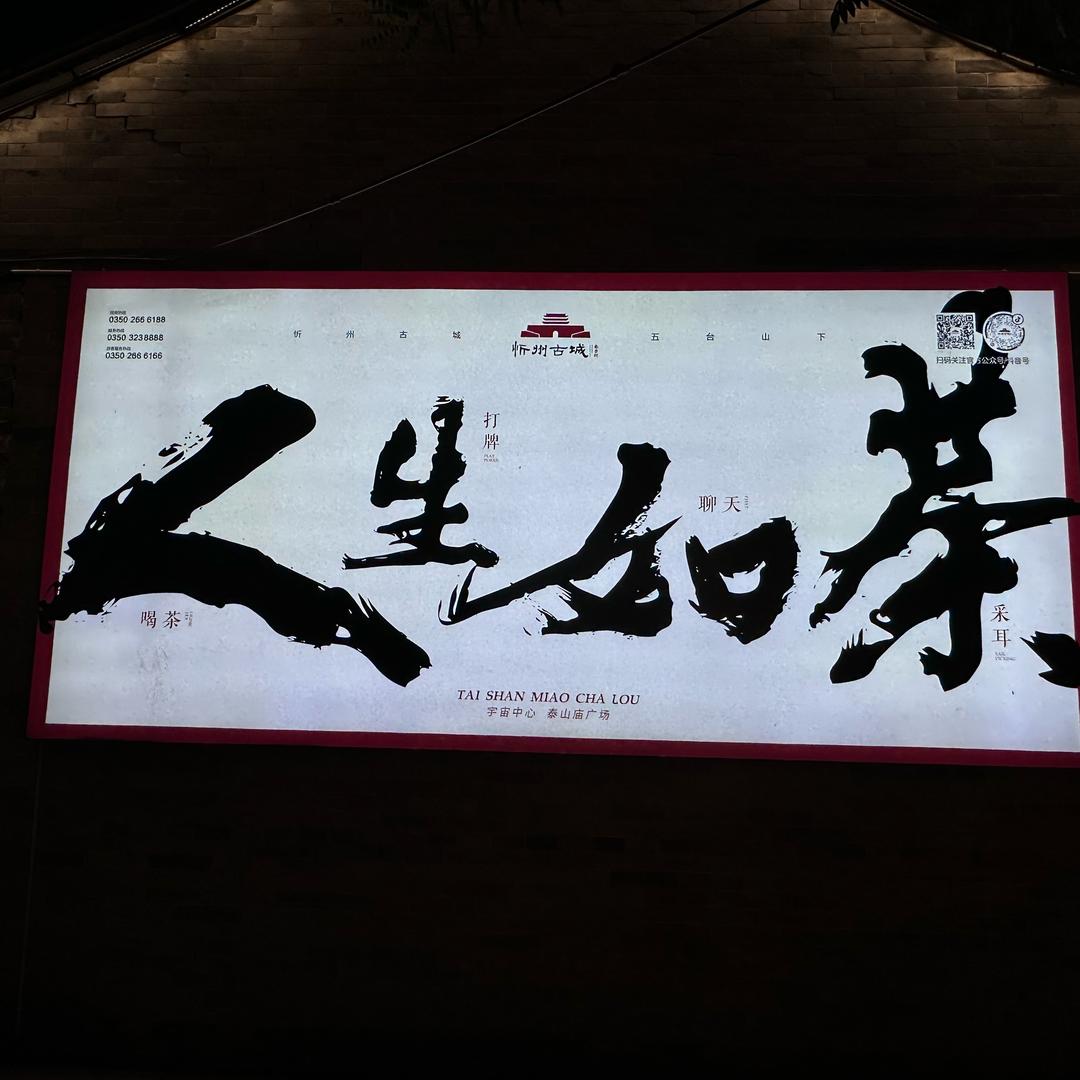 0350 266 6188
0350 3238888
0350 266 6166
忻州古城
忻州古城
五台山下
扫码关注官方公众号/抖音号
人生如茶
打牌
聊天
喝茶
采耳
TAI SHAN MIAO CHA LOU
宇宙中心 泰山庙广场